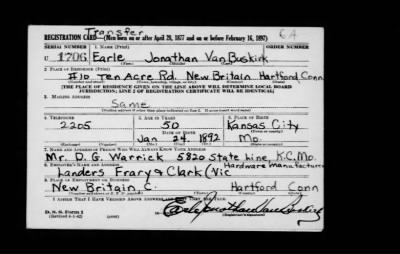 Transfer
6A
REGISTRATION CARD—(Men born on or after April 28, 1877 and on or before February 16, 1897)
SERIAL NUMBER 1. NAME (Print) ORDER NUMBER
U 1706 Earle Jonathan Van Buskirk
2. PLACE OF RESIDENCE (Print)
#10 Ten Acre Rd. New Britain Hartford Conn
[THE PLACE OF RESIDENCE GIVEN ON THE LINE ABOVE WILL DETERMINE LOCAL BOARD
JURISDICTION; LINE 2 OF REGISTRATION CERTIFICATE WILL BE IDENTICAL]
3. MAILING ADDRESS
Same
[Mailing address if other than place indicated on line 2. If same insert word same]
4. TELEPHONE 5. AGE IN YEARS 6. PLACE OF BIRTH
2205 50 Kansas City
DATE OF BIRTH
Jan. 24, 1892 Mo.
7. NAME AND ADDRESS OF PERSON WHO WILL ALWAYS KNOW YOUR ADDRESS
Mr. D. G. Warrick 5820 State Line, K.C. Mo.
8. EMPLOYER'S NAME AND ADDRESS
Hardware Manufacturer
Landers Frary & Clark
9. PLACE OF EMPLOYMENT OR BUSINESS
New Britain C. Hartford Conn
I AFFIRM THAT I HAVE VERIFIED ABOVE ANSWERS AND THAT THEY ARE TRUE.
D. S. S. Form 1
(Revised 4-1-42)
Earle Jonathan Van Buskirk